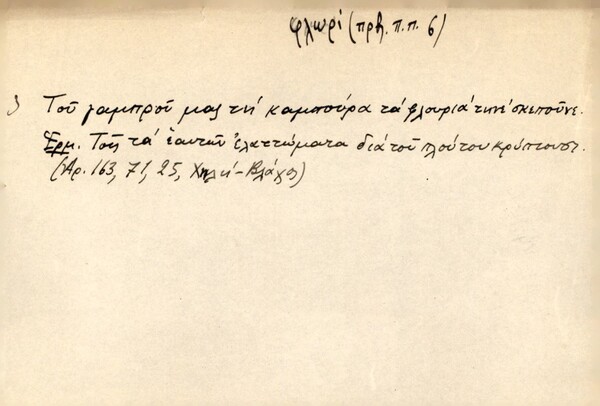 φλωρί (πρβ. π.π. 6)
Τοῦ γαμπροῦ μας τὴ καμπούρα τὰ βλουριὰ τηνὲ σκεποῦνε.
Ἑρμ. Τοῖς τὰ ἑαυτῶν ἐλαττώματα διὰ τοῦ πλούτου κρύπτουσι.
(Ἀρ. 163, 71, 25, Χηλή - Βλάχος)